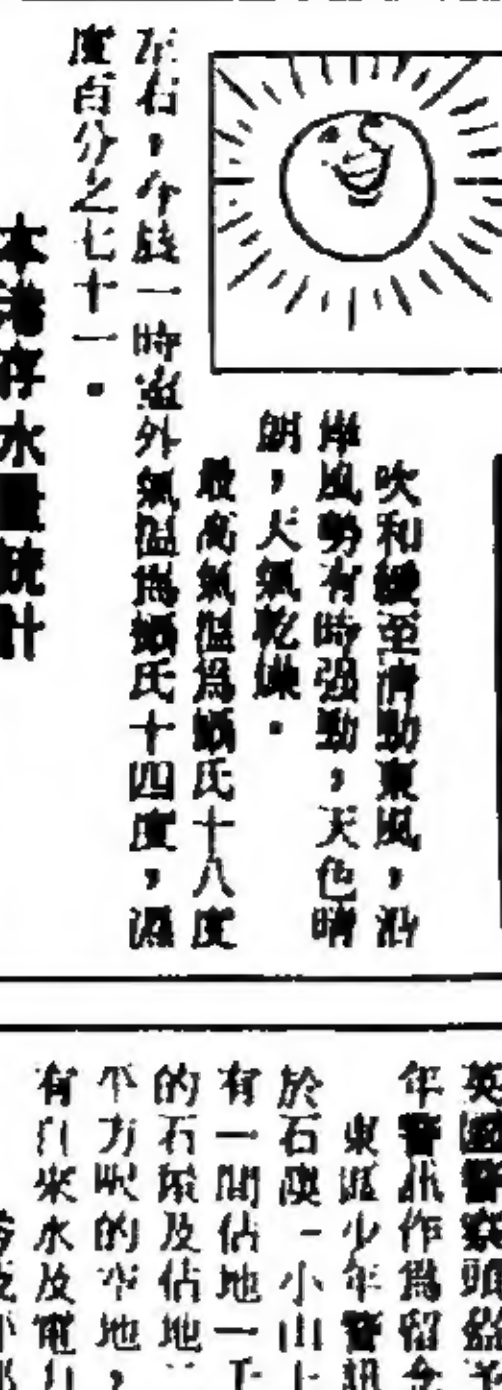 吹和緩至清勁東風，沿
岸風勢有時強勁，天色晴
朗，天氣乾燥。
最高氣溫爲攝氏十八度
左右，今晨一時室外氣溫爲攝氏十四度，濕
度百分之七十一。
本港存水量統計
英國警察頭盔
年警訊作爲留念
東區少年警訊
於石澳一小山上
有一間佔地一千
的石屎及佔地二
平方呎的空地，
有自來水及電力